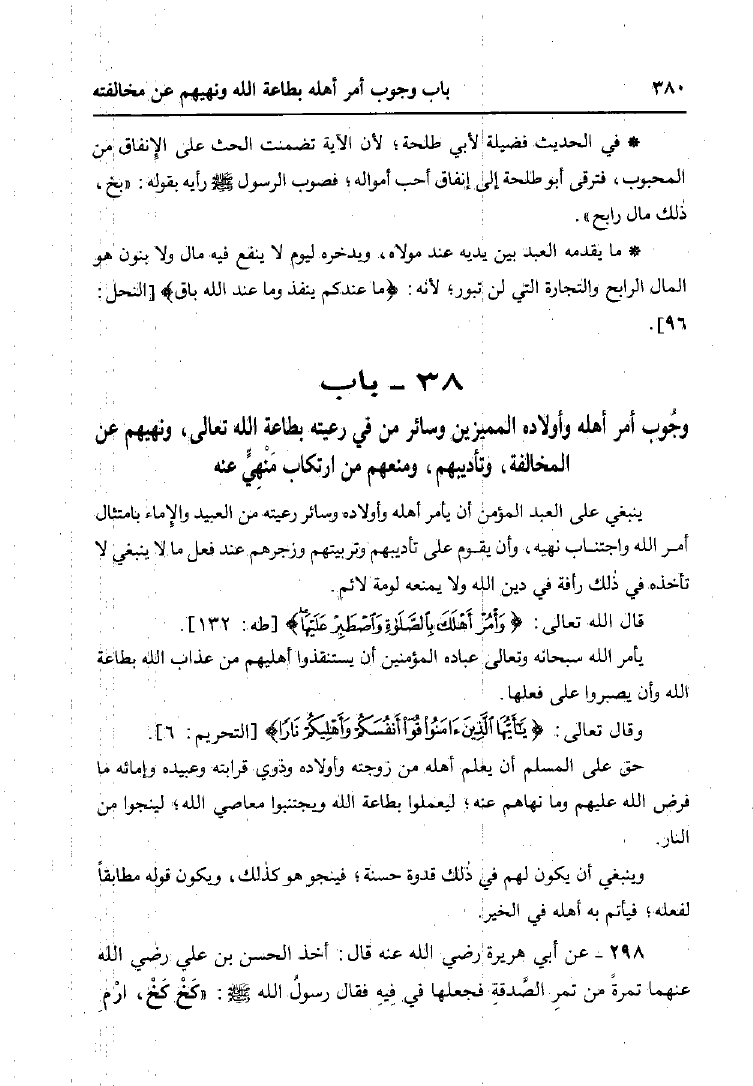 ٣٨٠ باب وجوب أمر أهله بطاعة الله ونهيهم عن مخالفته
* في الحديث فضيلة لأبي طلحة؛ لأن الآية تضمنت الحث على الإنفاق من
المحبوب، فترقى أبو طلحة إلى إنفاق أحب أمواله؛ فصوب الرسول ﷺ رأيه بقوله: «بخ،
ذٰلك مال رابح».
* ما يقدمه العبد بين يديه عند مولاه، ويدخره ليوم لا ينفع فيه مال ولا بنون هو
المال الرابح والتجارة التي لن تبور؛ لأنه: ﴿ما عندكم ينفذ وما عند الله باق﴾ [النحل:
٩٦].
٣٨ - باب
وجُوب أمر أهله وأولاده المميزين وسائر من في رعيته بطاعة الله تعالى، ونهيهم عن
المخالفة، وتأديبهم، ومنعهم من ارتكاب مَنْهِيٍّ عنه
ينبغي على العبد المؤمن أن يأمر أهله وأولاده وسائر رعيته من العبيد والإماء بامتثال
أمر الله واجتناب نهيه، وأن يقوم على تأديبهم وتربيتهم وزجرهم عند فعل ما لا ينبغي لا
تأخذه في ذٰلك رأفة في دين الله ولا يمنعه لومة لائم.
قال الله تعالى: ﴿وَأْمُرْ أَهْلَكَ بِٱلصَّلَوٰةِ وَٱصْطَبِرْ عَلَيْهَا﴾ [طه: ١٣٢].
يأمر الله سبحانه وتعالى عباده المؤمنين أن يستنقذوا أهليهم من عذاب الله بطاعة
الله وأن يصبروا على فعلها.
وقال تعالى: ﴿يَٰٓأَيُّهَا ٱلَّذِينَ ءَامَنُوا۟ قُوٓا۟ أَنفُسَكُمْ وَأَهْلِيكُمْ نَارًا﴾ [التحريم: ٦].
حق على المسلم أن يعلم أهله من زوجته وأولاده وذوي قرابته وعبيده وإمائه ما
فرض الله عليهم وما نهاهم عنه؛ ليعملوا بطاعة الله ويجتنبوا معاصي الله؛ لينجوا من
النار.
وينبغي أن يكون لهم في ذٰلك قدوة حسنة؛ فينجو هو كذٰلك، ويكون قوله مطابقاً
لفعله؛ فيأتم به أهله في الخير.
٢٩٨ - عن أبي هريرة رضي الله عنه قال: أخذ الحسن بن علي رضي الله
عنهما تمرةً من تمرِ الصَّدقةِ فجعلها في فِيهِ فقال رسولُ الله ﷺ: «كَخْ كَخْ، ارْمِ